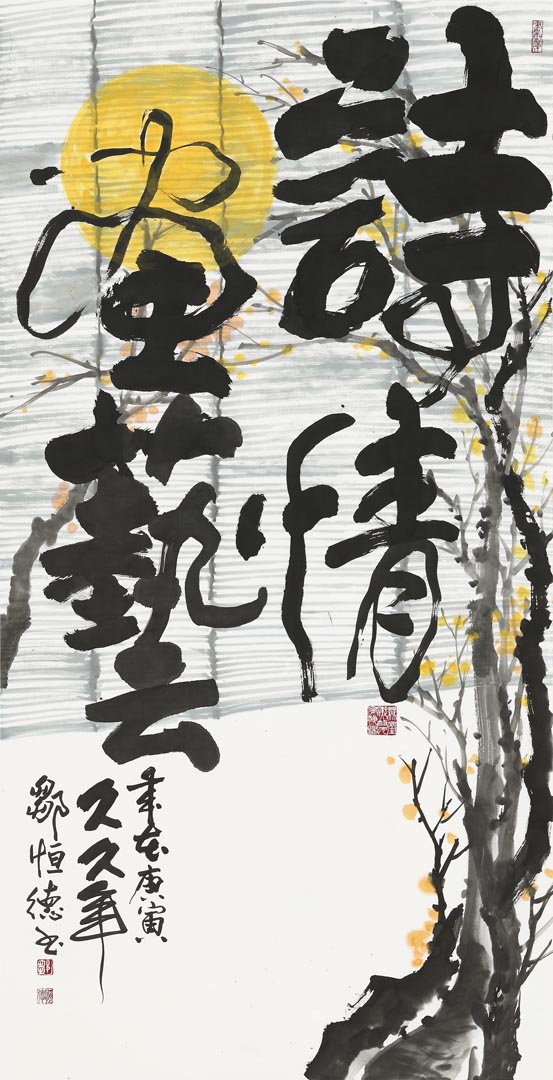 詩情
畫藝
在庚寅
久久年
鄒恒德书